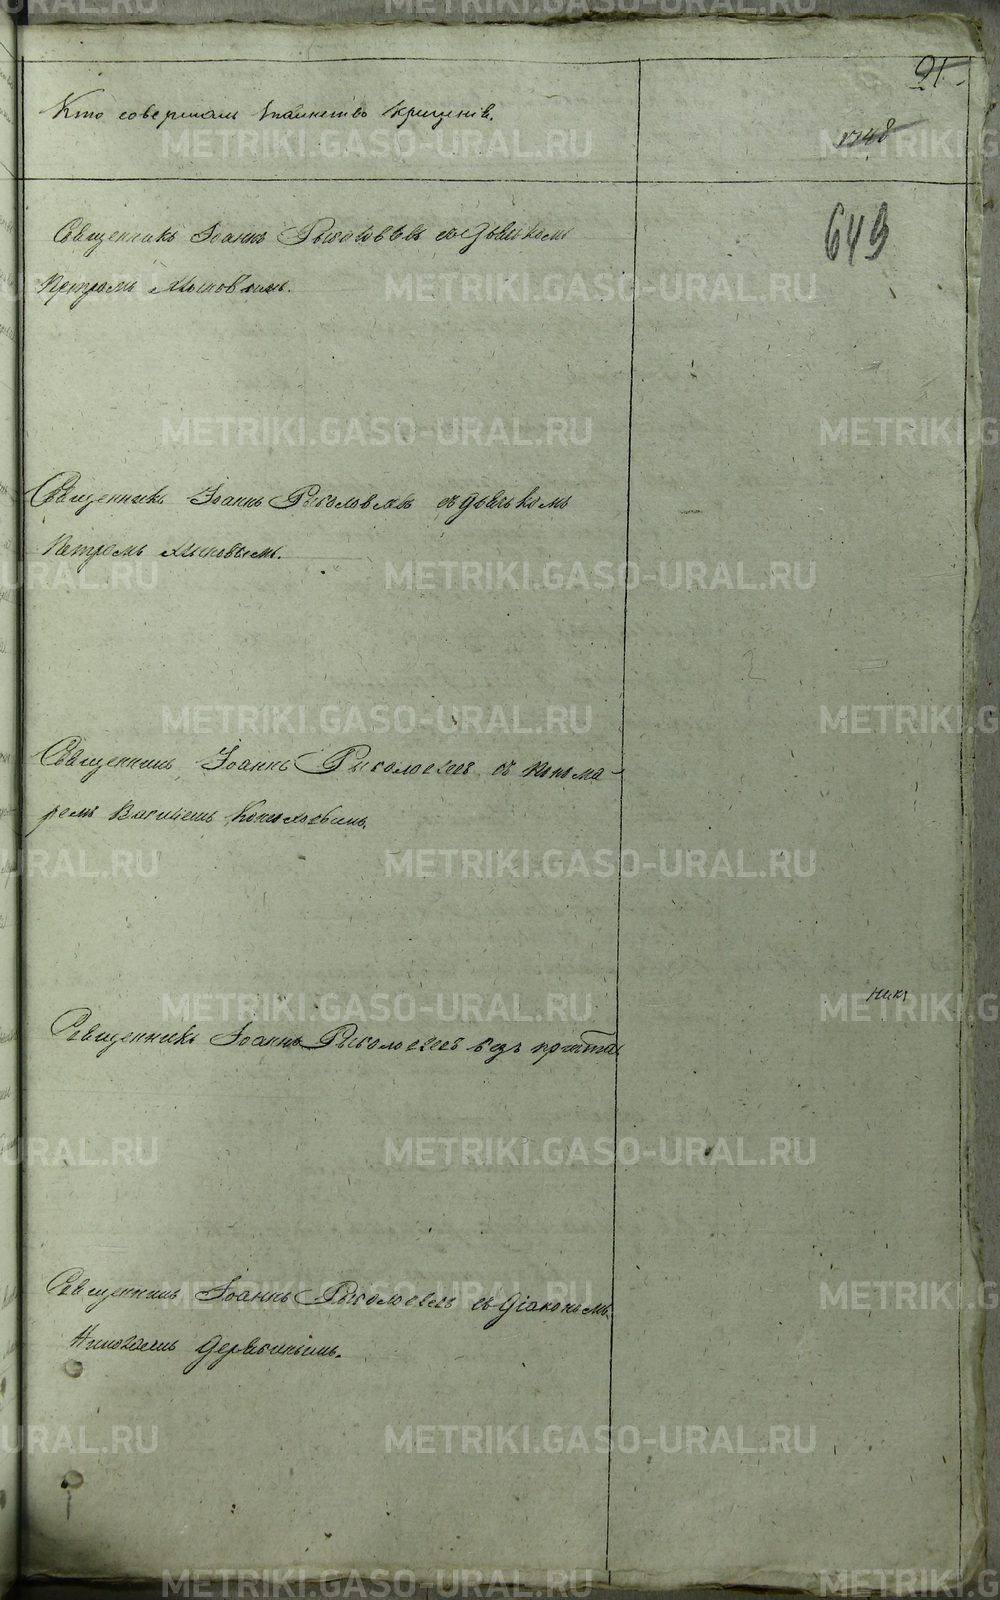 91.
Кто совершалъ таинство крещенія.
1748
649
Священникъ Іоаннъ Рыболовлевъ съ дьячкомъ
Петромъ
Священникъ Іоаннъ Рыболовлевъ съ дьячкомъ
Петромъ
Священникъ Іоаннъ Рыболовлевъ съ понома-
ремъ Василіемъ
Священникъ Іоаннъ Рыболовлевъ безъ причта
Священникъ Іоаннъ Рыболовлевъ съ діакономъ
Николаемъ Дерябинымъ.
METRIKI.GASO-URAL.RU